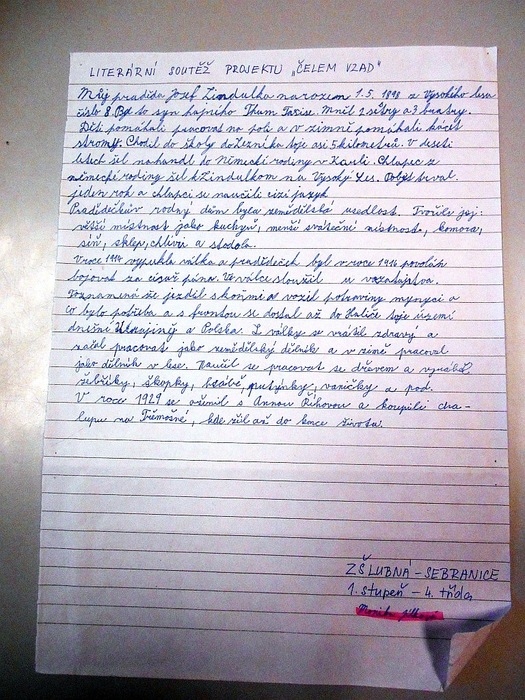 LITERÁRNÍ SOUTĚŽ PROJEKTU „ČELEM VZAD"
Můj praděda Josef Zindulka narozen 1.5. 1898 z Vysokého lesa
číslo 8. Byl to syn hajného Thum Taxise. Měnil 2 sestry a 3 bratry.
Děti pomáhali pracovat na poli a v zimně pomáhali kácet
stromy. Chodil do školy do to je asi 5 kilometrů. V deseti
letech šel na handl do Německé rodiny v Chlapec z
německé rodiny šel k Zindulkom na Vysoký Les. Pobyt trval
jeden rok a chlapci se naučili cizí jazyk
Pradědečkův rodný dům byla zemědělská usedlost. Tvořila jej:
větší místnost jako kuchyň, menší sváteční místnost, komora,
síň, sklep, chlívy a stodola.
V roce 1914 vypukla válka a pradědeček byl v roce 1916 povolán
bojovat za císař pána. Ve válce sloužil u vozatajstva.
To znamená že jezdil s koňmi a vozil potraviny mynyci a
co bylo potřeba a s frontou se dostal až do Haliče to je území
dnešní Ukrajiny a Polska. Z války se vrátil zdravý a
začal pracovat jako zemědělský dělník a v zimě pracoval
jako dělník v lese. Naučil se pracovat se dřevem a vyráběl
žebříky, škopky, hrábě, putýnky, vaničky a pod.
V roce 1929 se oženil s Annou Říhovou a koupili cha-
lupu na Třemošné, kde žil až do konce života.
ZŠ LUBNÁ - SEBRANICE
1. stupeň - 4. třída